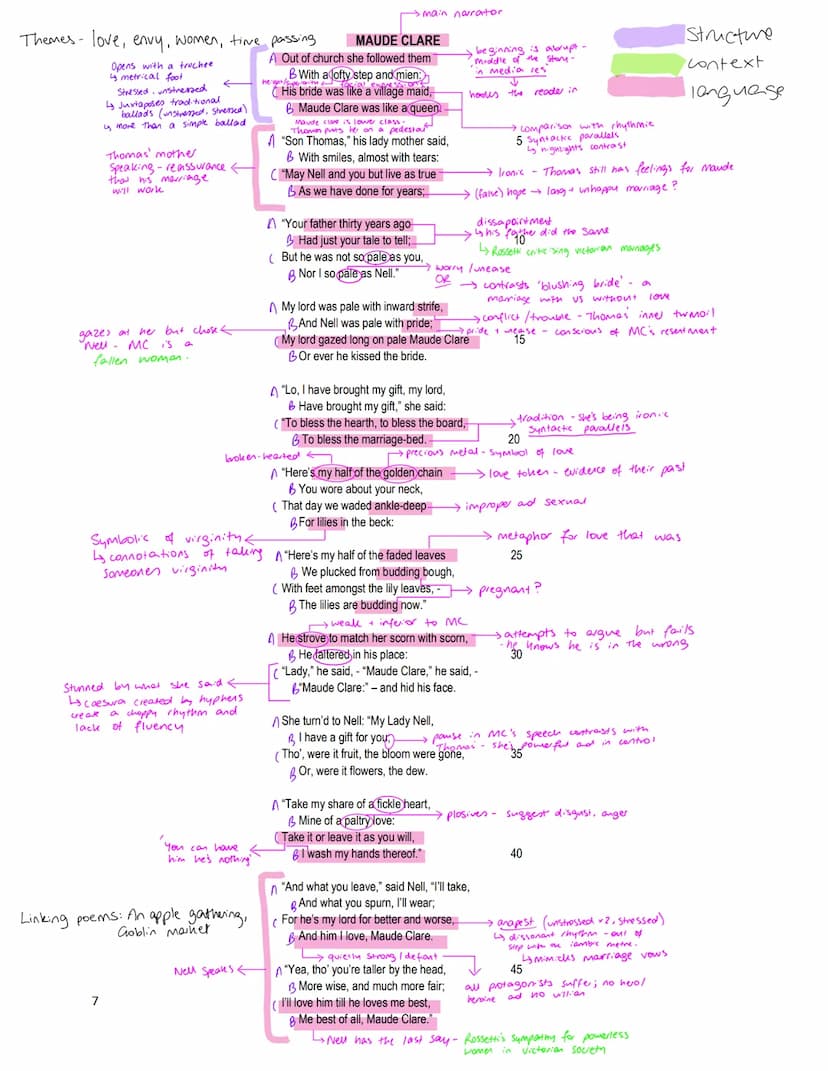 main narrator
Themes - love, envy, women, time passing
MAUDE CLARE
Structure
context
language
Opens with a trochee
↳ metrical foot
Stressed, unstressed
↳ Juxtaposes traditional
ballads (unstressed, stressed)
↳ more than a simple ballad
A Out of church she followed them
B With a lofty step and mien:
height/superiority
facial expression
C His bride was like a village maid,
B Maude Clare was like a queen.
Maude Clare is lower class -
Thomas puts her on a pedestal
beginning is abrupt -
middle of the story -
in media res
hooks the reader in
comparison with rhythmic
syntactic parallels
↳ highlights contrast
A “Son Thomas,” his lady mother said, 5
B With smiles, almost with tears:
C “May Nell and you but live as true
B As we have done for years;
Thomas' mother
speaking - reassurance
that his marriage
will work
Ironic - Thomas still has feelings for Maude
(false) hope → long + unhappy marriage?
A “Your father thirty years ago
B Had just your tale to tell; 10
C But he was not so pale as you,
B Nor I so pale as Nell.”
dissapointment
↳ his father did the same
↳ Rossetti criticising victorian marriages
worry/unease
OR → contrasts 'blushing bride' - a
marriage with vs without love
A My lord was pale with inward strife,
B And Nell was pale with pride;
C My lord gazed long on pale Maude Clare 15
B Or ever he kissed the bride.
conflict/trouble - Thomas' inner turmoil
pride + unease - conscious of MC's resentment
gazes at her but chose
Nell - MC is a
fallen woman.
A “Lo, I have brought my gift, my lord,
B Have brought my gift,” she said:
C “To bless the hearth, to bless the board,
B To bless the marriage-bed. 20
tradition - she's being ironic
syntactic parallels
broken-hearted
precious metal - symbol of love
A “Here's my half of the golden chain
B You wore about your neck,
C That day we waded ankle-deep
B For lilies in the beck:
love token - evidence of their past
improper and sexual
Symbolic of virginity
↳ connotations of taking
someones virginity
metaphor for love that was
A “Here's my half of the faded leaves 25
B We plucked from budding bough,
C With feet amongst the lily leaves, -
B The lilies are budding now.”
pregnant?
weak + inferior to MC
A He strove to match her scorn with scorn,
B He faltered in his place: 30
C “Lady,” he said, - “Maude Clare,” he said, -
B “Maude Clare:” – and hid his face.
attempts to argue but fails
- he knows he is in the wrong
Stunned by what she said
↳ caesura created by hyphens
create a choppy rhythm and
lack of fluency
A She turn’d to Nell: “My Lady Nell,
B I have a gift for you;
C Tho’, were it fruit, the bloom were gone, 35
B Or, were it flowers, the dew.
pause in MC's speech contrasts with
Thomas - she's powerful and in control
A “Take my share of a fickle heart,
B Mine of a paltry love:
C Take it or leave it as you will,
B I wash my hands thereof.” 40
plosives - suggest disgust, anger
'You can have
him he's nothing'
A “And what you leave,” said Nell, “I’ll take,
B And what you spurn, I’ll wear;
C For he’s my lord for better and worse,
B And him I love, Maude Clare.
Linking poems: An apple gathering,
Goblin market
anapest (unstressed x2, stressed)
↳ dissonant rhythm - out of
step with the iambic metre.
↳ mimicks marriage vows
quietly strong/defiant
Nell speaks
A “Yea, tho’ you’re taller by the head, 45
B More wise, and much more fair;
C I’ll love him till he loves me best,
B Me best of all, Maude Clare.”
all potagonists suffer; no hero/
heroine and no villian
7
Nell has the last say - Rossetti's sympathy for powerless
women in victorian society